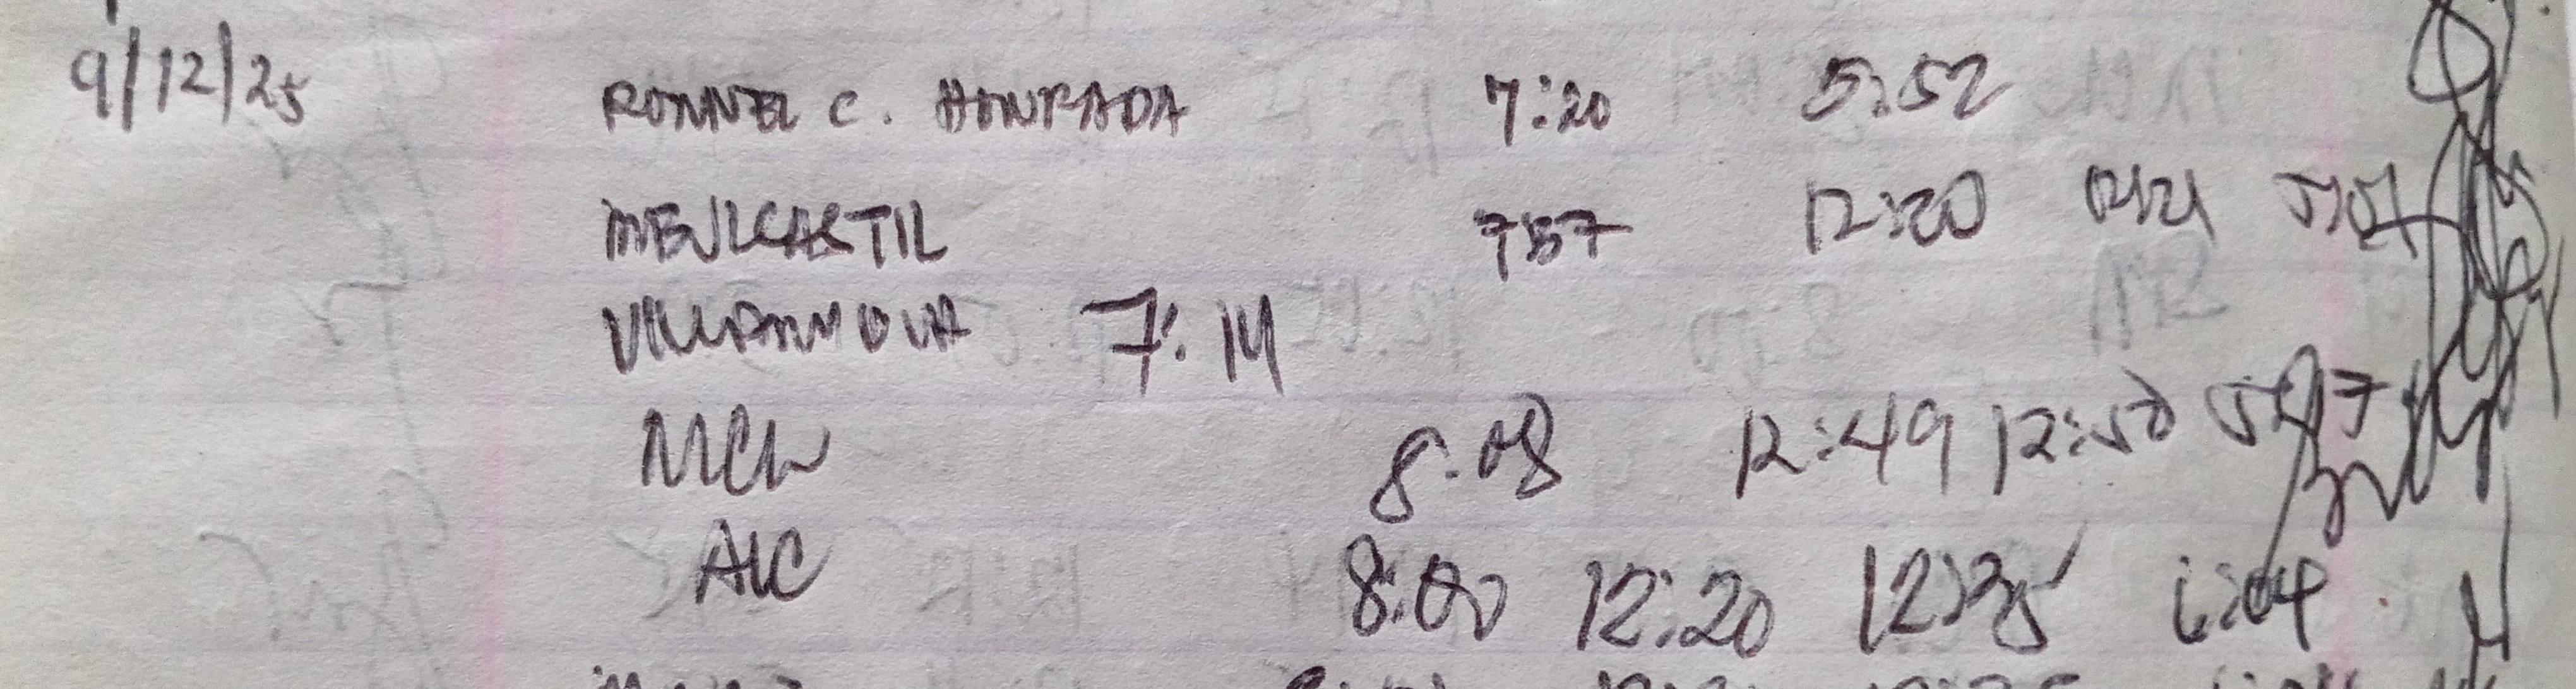 9/12/25 RONNEL C. HONRADA 7:20 5:52
MEJLCASTIL 7:57 12:20 12:21
VILLANUEVA 7:14
MCW 8:08 12:49 12:50
AIC 8:00 12:20 12:35 6:04